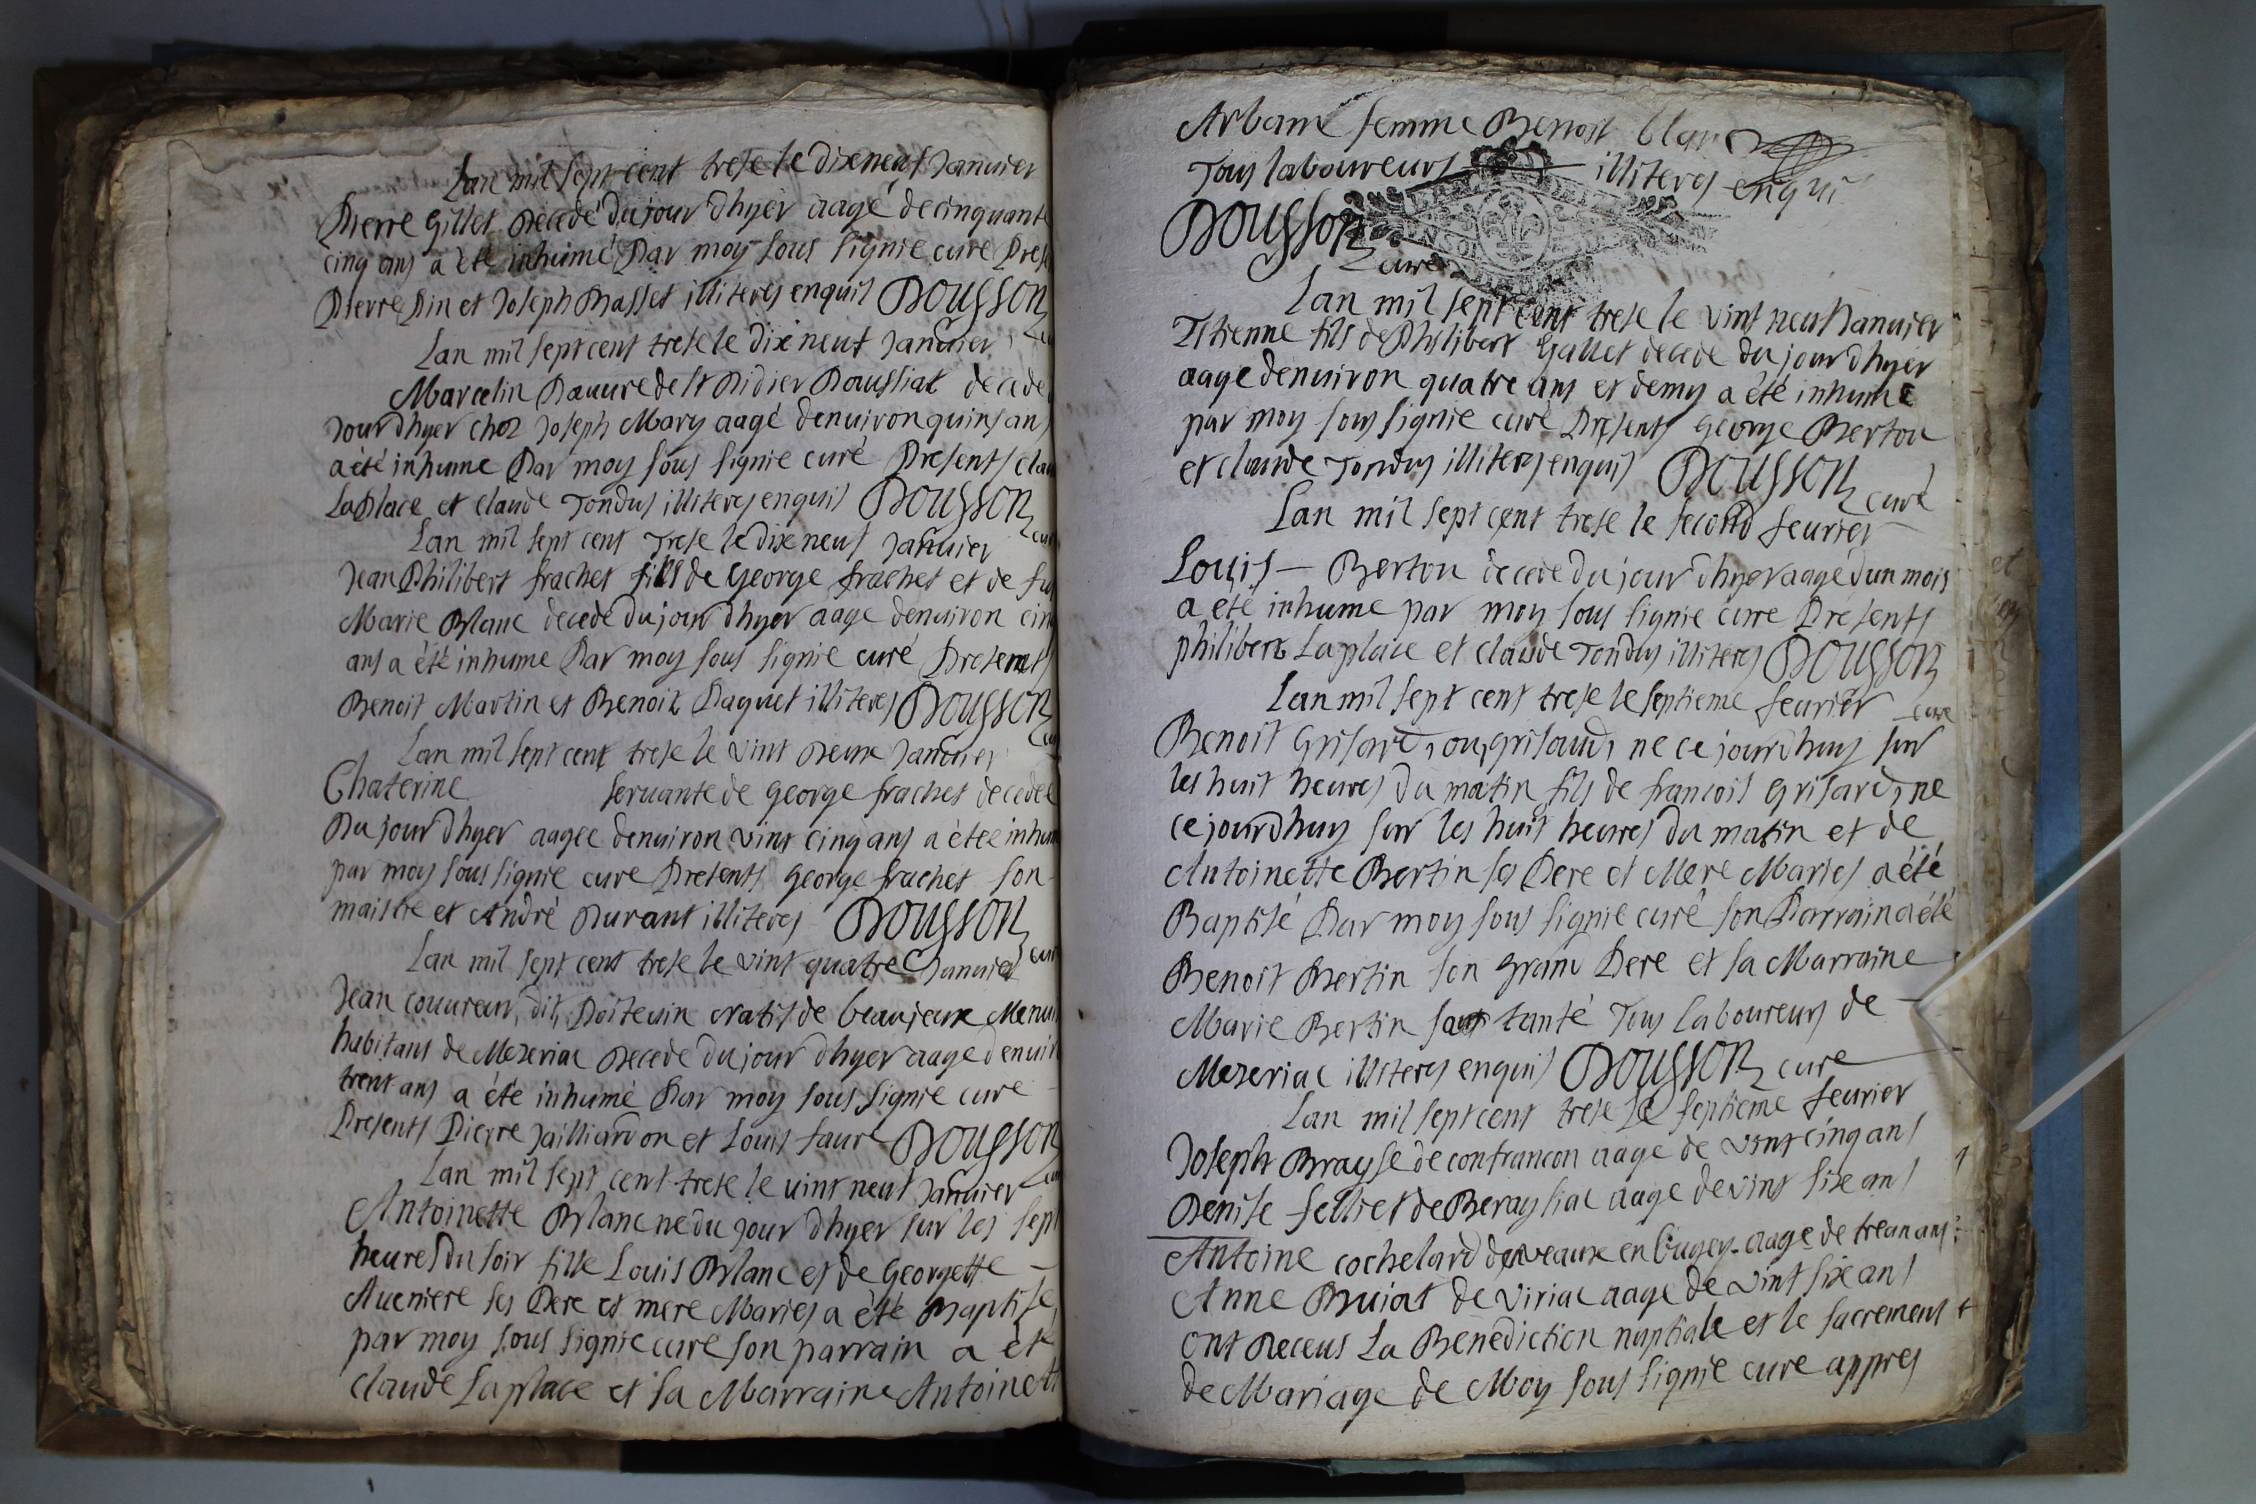 Lan mil sept cent trese le dixneuf Januier
Pierre Gillet Decedé du jour dhyer aagé de cinquante
cinq ans a èté inhumé Par moy sous signie curé
Pierre Pin et Joseph Basset illiteres enquis Dousson
Lan mil sept cent trese le dixneuf Januier
Marcelin Pauure de St Didier Doussiat decede
Jour dhyer chez Joseph Mary aagé denuiron quins ans
a èté inhume Par moy sous signie curé Presents
Laplace et claude Tondus illiteres enquis Dousson
Lan mil sept cent Trese le dixneuf Januier
Jean Philibert frachet fils de George frachet et de
Marie Blanc decede du jour dhyer aage denuiron
ans a été inhume Par moy sous signie curé Presents
Benoit Martin et Benoit Paquet illiteres Dousson
Lan mil sept cent trese le vint Deux Januier
Chaterine seruante de George frachet decedee
Du jour dhyer aagee denuiron vint cinq ans a étee
par moy sous signie cure Presents George frachet son
maistre et André Durant illiteres Dousson
Lan mil sept cent trese le vint quatre Januier
Jean couureur, dit, Poiteuin natif de beaujeux
habitant de Mezeriac Decede du jour dhyer aage
trent ans a été inhumé Par moy sous signie cure
Presents Pierre Jailliardon et Louis faure Dousson
Lan mil sept cent trese le vint neuf Januier
Antoinette Blanc ne du jour dhyer sur les sept
heures du soir fille Louis Blanc et de Georgette
Aueniere ses Pere et mere Maries a été Baptise
par moy sous signie cure son parrain a
claude Laplace et sa Marraine
Arbam femme Benoit
Tous laboureurs illiteres enquis
Dousson cure
Lan mil sept cent trese le vint neuf Januier
Etienne fils de Philibert Gallet decede du jour dhyer
aage denuiron quatre ans et demy a été inhume
par moy sous signie curé Presents George Berton
et claude Tondus illiteres enquis Dousson
curé
Lan mil sept cent trese le second feurier
Louis Berton decede du jour dhyer aagé dun mois
a eté inhume par moy sous signie cure Presents
philibert Laplace et claude Tondus illiteres Dousson
Lan mil sept cent trese le septieme feurier
cure
Benoit Grisard, ou, grisaud, ne ce jourdhuy sur
les huit heures du matin fils de francois Grisard, ne
ce jourdhuy sur les huit heures du matin et de
Antoinette Bertin ses Pere et Mere Maries a été
Baptisé Par moy sous signie curé son Parrain a été
Benoit Bertin son grand Pere et sa Marraine
Marie Bertin tanté Tous laboureurs de
Mezeriac illiteres enquis Dousson cure
Lan mil sept cent trese le septieme feurier
Joseph Braysse de confrancon aage de vint cinq ans
Denise felliet de aage de vint six ans
Antoine cochelard en bugey aage de ans
Anne Buiat de Viriac aage de vint six ans
ont Receus La Benediction nuptiale et le sacrement
de Mariage de Moy sous signie cure appres